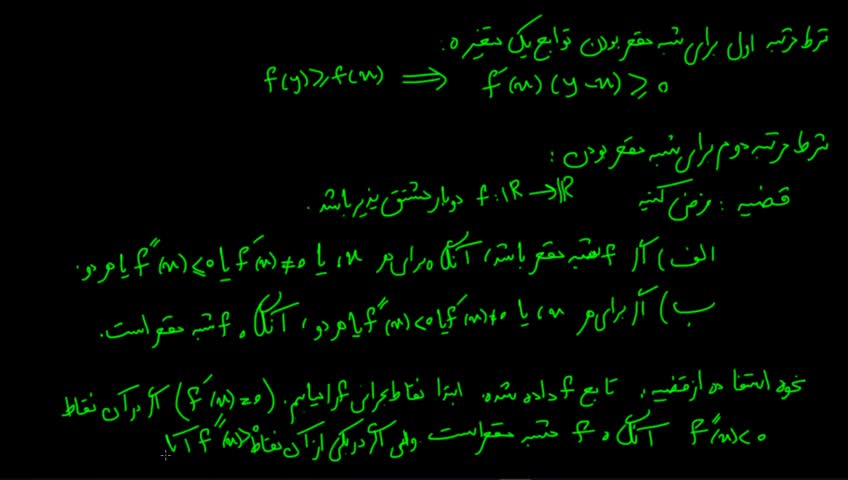 شرط مرتبه اول برای شبه مقعر بودن توابع یک متغیره :
f(y) ≥ f(x) ⟹ f′(x)(y-x) ≥ 0
شرط مرتبه دوم برای شبه مقعر بودن :
قضیه : فرض کنید f: ℝ → ℝ دوبار مشتق پذیر باشد .
الف) اگر f شبه مقعر باشد، آنگاه برای هر x، یا f′(x) ≠ 0 یا f″(x) ≤ 0 یا هر دو.
ب) اگر برای هر x، یا f′(x) ≠ 0 یا f″(x) < 0 یا هر دو، آنگاه f شبه مقعر است.
نحوه استفاده از قضیه، تابع f داده شده. ابتدا نقاط بحرانی f را میابیم. (f′(x) = 0) اگر در آن نقاط
f″(x) < 0 آنگاه f شبه مقعر است ولی اگر در یکی از آن نقاط f″(x) > 0